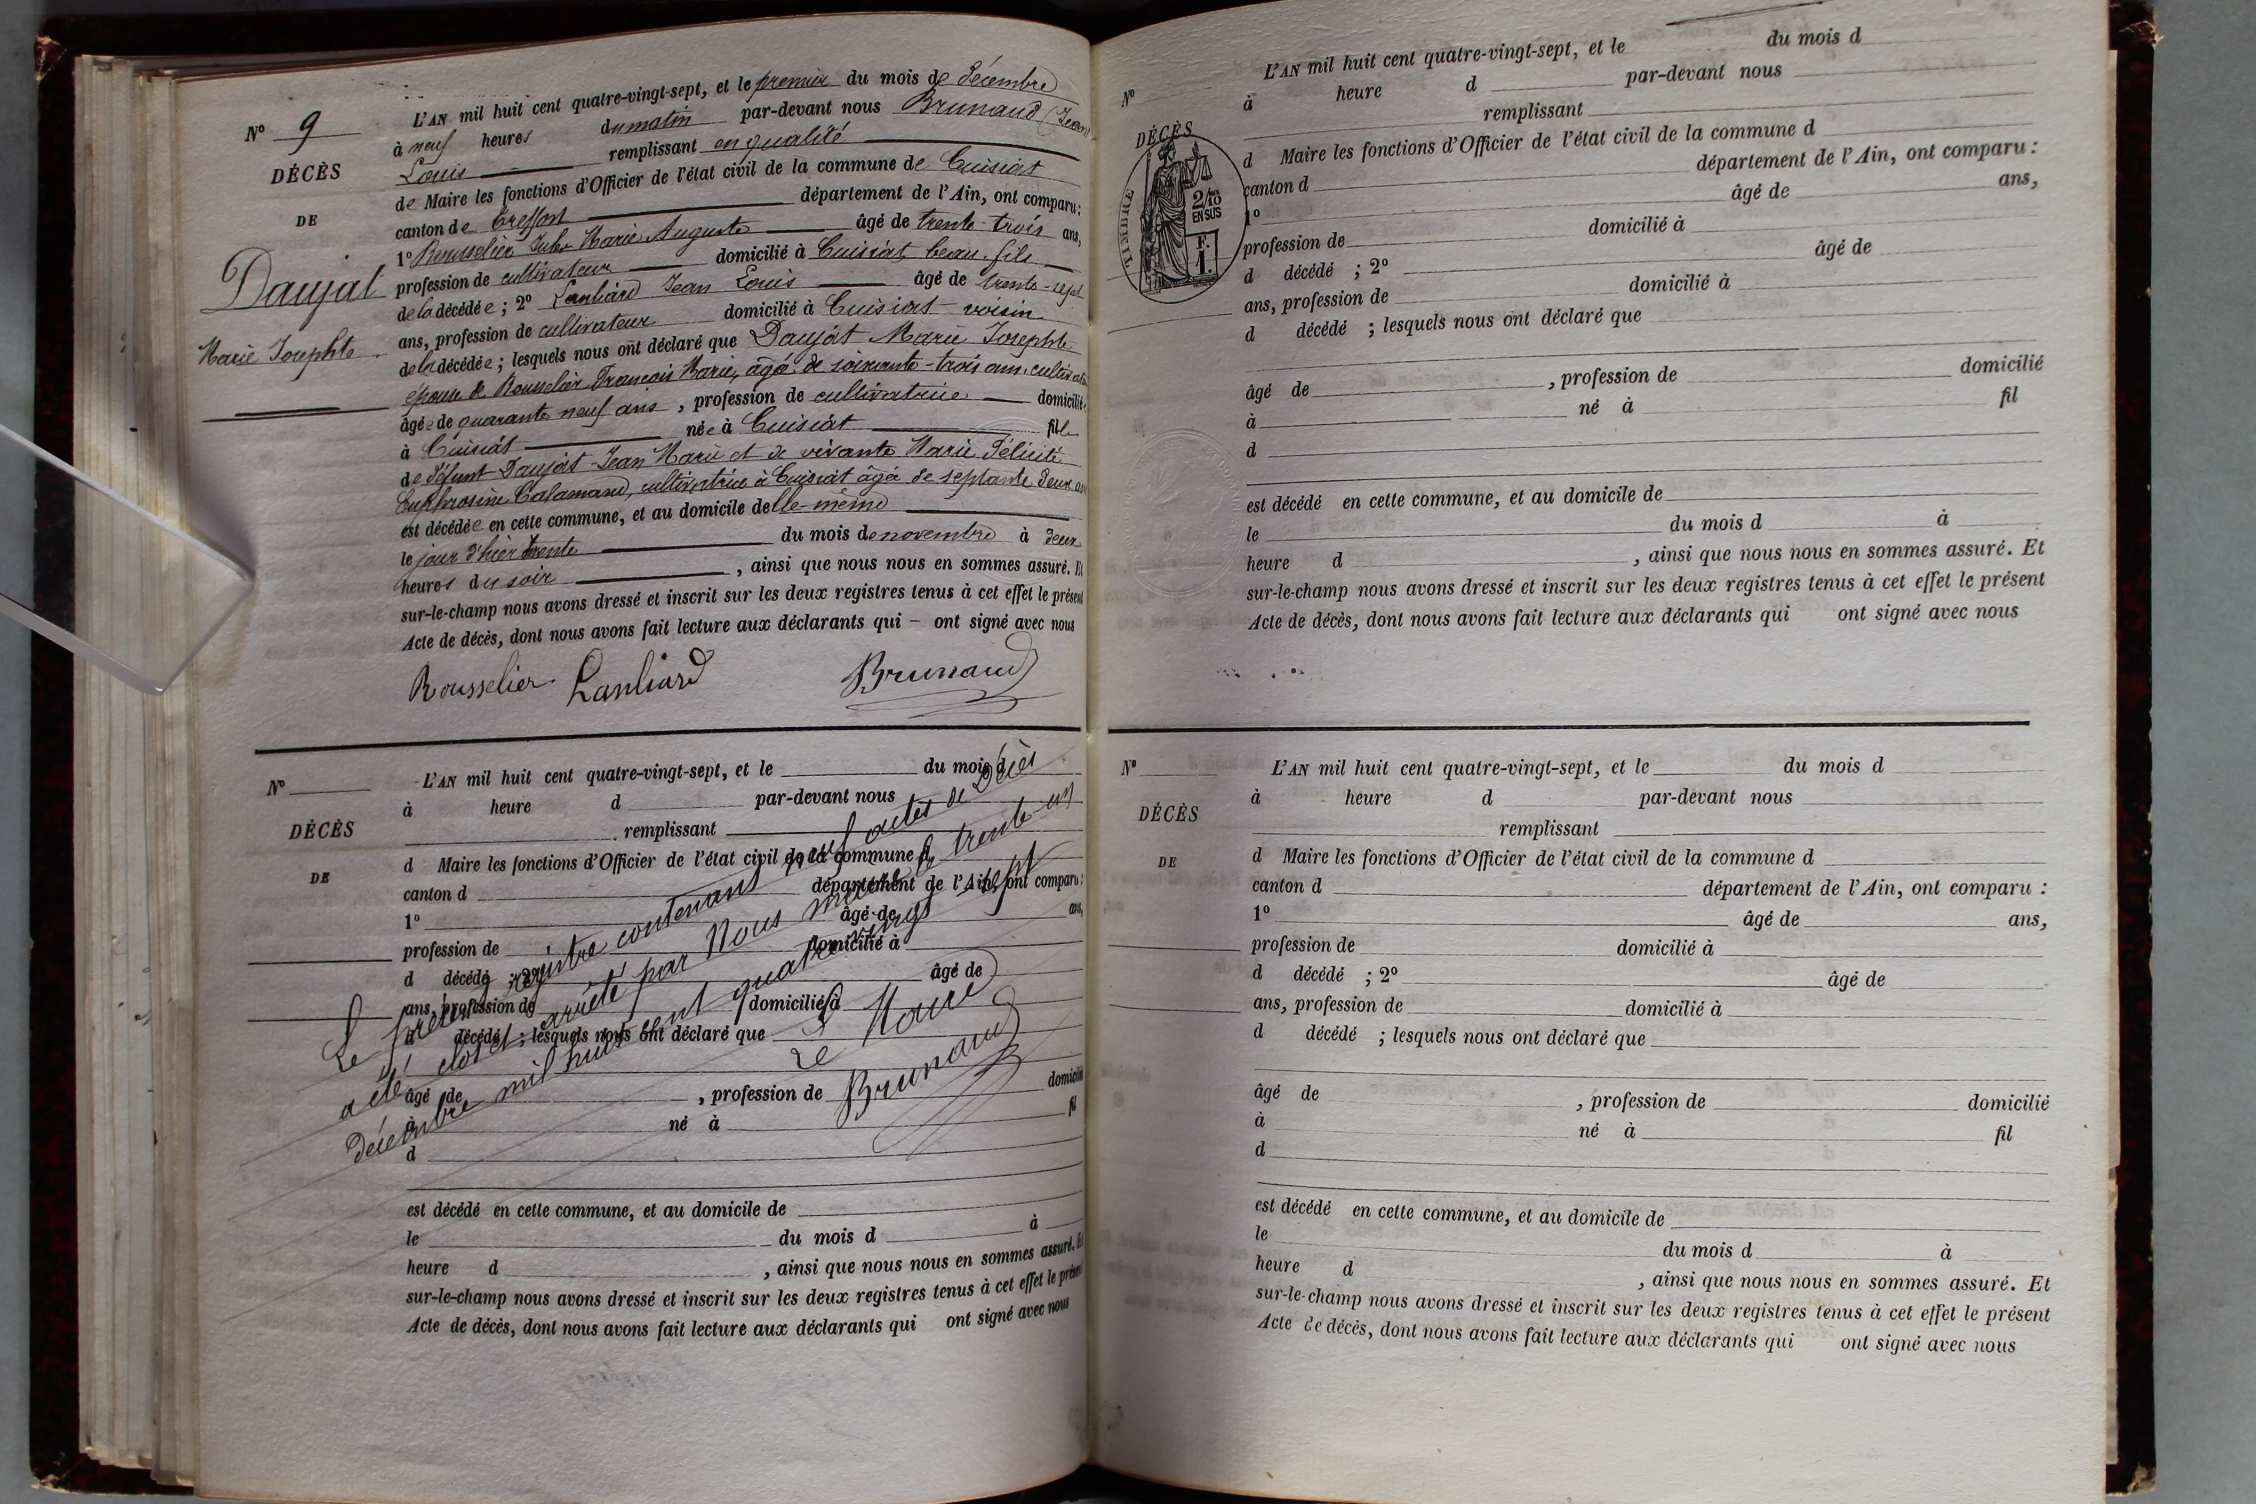 N° 9
DÉCÈS
DE
Daujat
Marie Josephte
L'AN mil huit cent quatre-vingt-sept, et le premier du mois de Décembre
à neuf heures du matin par-devant nous Brunaud (Jean
Louis remplissant en qualité
de Maire les fonctions d'Officier de l'état civil de la commune de Cuisiat
canton de Treffort département de l'Ain, ont comparu:
1° Rousselier Jules Marie Auguste âgé de trente-trois ans,
profession de cultivateur domicilié à Cuisiat beau-fils
de la décédée; 2° Lanliard Jean Louis âgé de trente-sept
ans, profession de cultivateur domicilié à Cuisiat voisin
de la décédée; lesquels nous ont déclaré que Daujat Marie Josephte
épouse de Rousselier François Marie, âgé de soixante-trois ans, cultivateur
âgée de quarante neuf ans, profession de cultivatrice domiciliée
à Cuisiat née à Cuisiat fille
de défunt Daujat Jean Marie et de vivante Marie Félicité
Euphrosine Calamard, cultivatrice à Cuisiat âgée de septante deux ans
est décédée en cette commune, et au domicile d'elle-même
le jour d'hier trente du mois de novembre à deux
heures du soir, ainsi que nous nous en sommes assuré. Et
sur-le-champ nous avons dressé et inscrit sur les deux registres tenus à cet effet le présent
Acte de décès, dont nous avons fait lecture aux déclarants qui – ont signé avec nous
Rousselier Lanliard Brunaud
N°
DÉCÈS
DE
L'AN mil huit cent quatre-vingt-sept, et le du mois d
à heure d par-devant nous
remplissant
d Maire les fonctions d'Officier de l'état civil de la commune d
canton d département de l'Ain, ont comparu:
1° âgé de ans,
profession de domicilié à
d décédé ; 2° âgé de
ans, profession de domicilié à
d décédé ; lesquels nous ont déclaré que
âgé de , profession de domicilié
à né à fil
d
est décédé en cette commune, et au domicile de
le du mois d à
heure d , ainsi que nous nous en sommes assuré. Et
sur-le-champ nous avons dressé et inscrit sur les deux registres tenus à cet effet le présent
Acte de décès, dont nous avons fait lecture aux déclarants qui ont signé avec nous
Le présent registre contenant neuf actes de Décès
a été clos et arrêté par Nous maire le trente un
Décembre mil huit cent quatre vingt sept
Le Maire
Brunaud
N°
DÉCÈS
TIMBRE
2/10
EN SUS
F.
1.
L'AN mil huit cent quatre-vingt-sept, et le du mois d
à heure d par-devant nous
remplissant
d Maire les fonctions d'Officier de l'état civil de la commune d
canton d département de l'Ain, ont comparu:
1° âgé de ans,
profession de domicilié à
d décédé ; 2° âgé de
ans, profession de domicilié à
d décédé ; lesquels nous ont déclaré que
âgé de , profession de domicilié
à né à fil
d
est décédé en cette commune, et au domicile de
le du mois d à
heure d , ainsi que nous nous en sommes assuré. Et
sur-le-champ nous avons dressé et inscrit sur les deux registres tenus à cet effet le présent
Acte de décès, dont nous avons fait lecture aux déclarants qui ont signé avec nous
N°
DÉCÈS
DE
L'AN mil huit cent quatre-vingt-sept, et le du mois d
à heure d par-devant nous
remplissant
d Maire les fonctions d'Officier de l'état civil de la commune d
canton d département de l'Ain, ont comparu :
1° âgé de ans,
profession de domicilié à
d décédé ; 2° âgé de
ans, profession de domicilié à
d décédé ; lesquels nous ont déclaré que
âgé de , profession de domicilié
à né à fil
d
est décédé en cette commune, et au domicile de
le du mois d à
heure d , ainsi que nous nous en sommes assuré. Et
sur-le-champ nous avons dressé et inscrit sur les deux registres tenus à cet effet le présent
Acte de décès, dont nous avons fait lecture aux déclarants qui ont signé avec nous